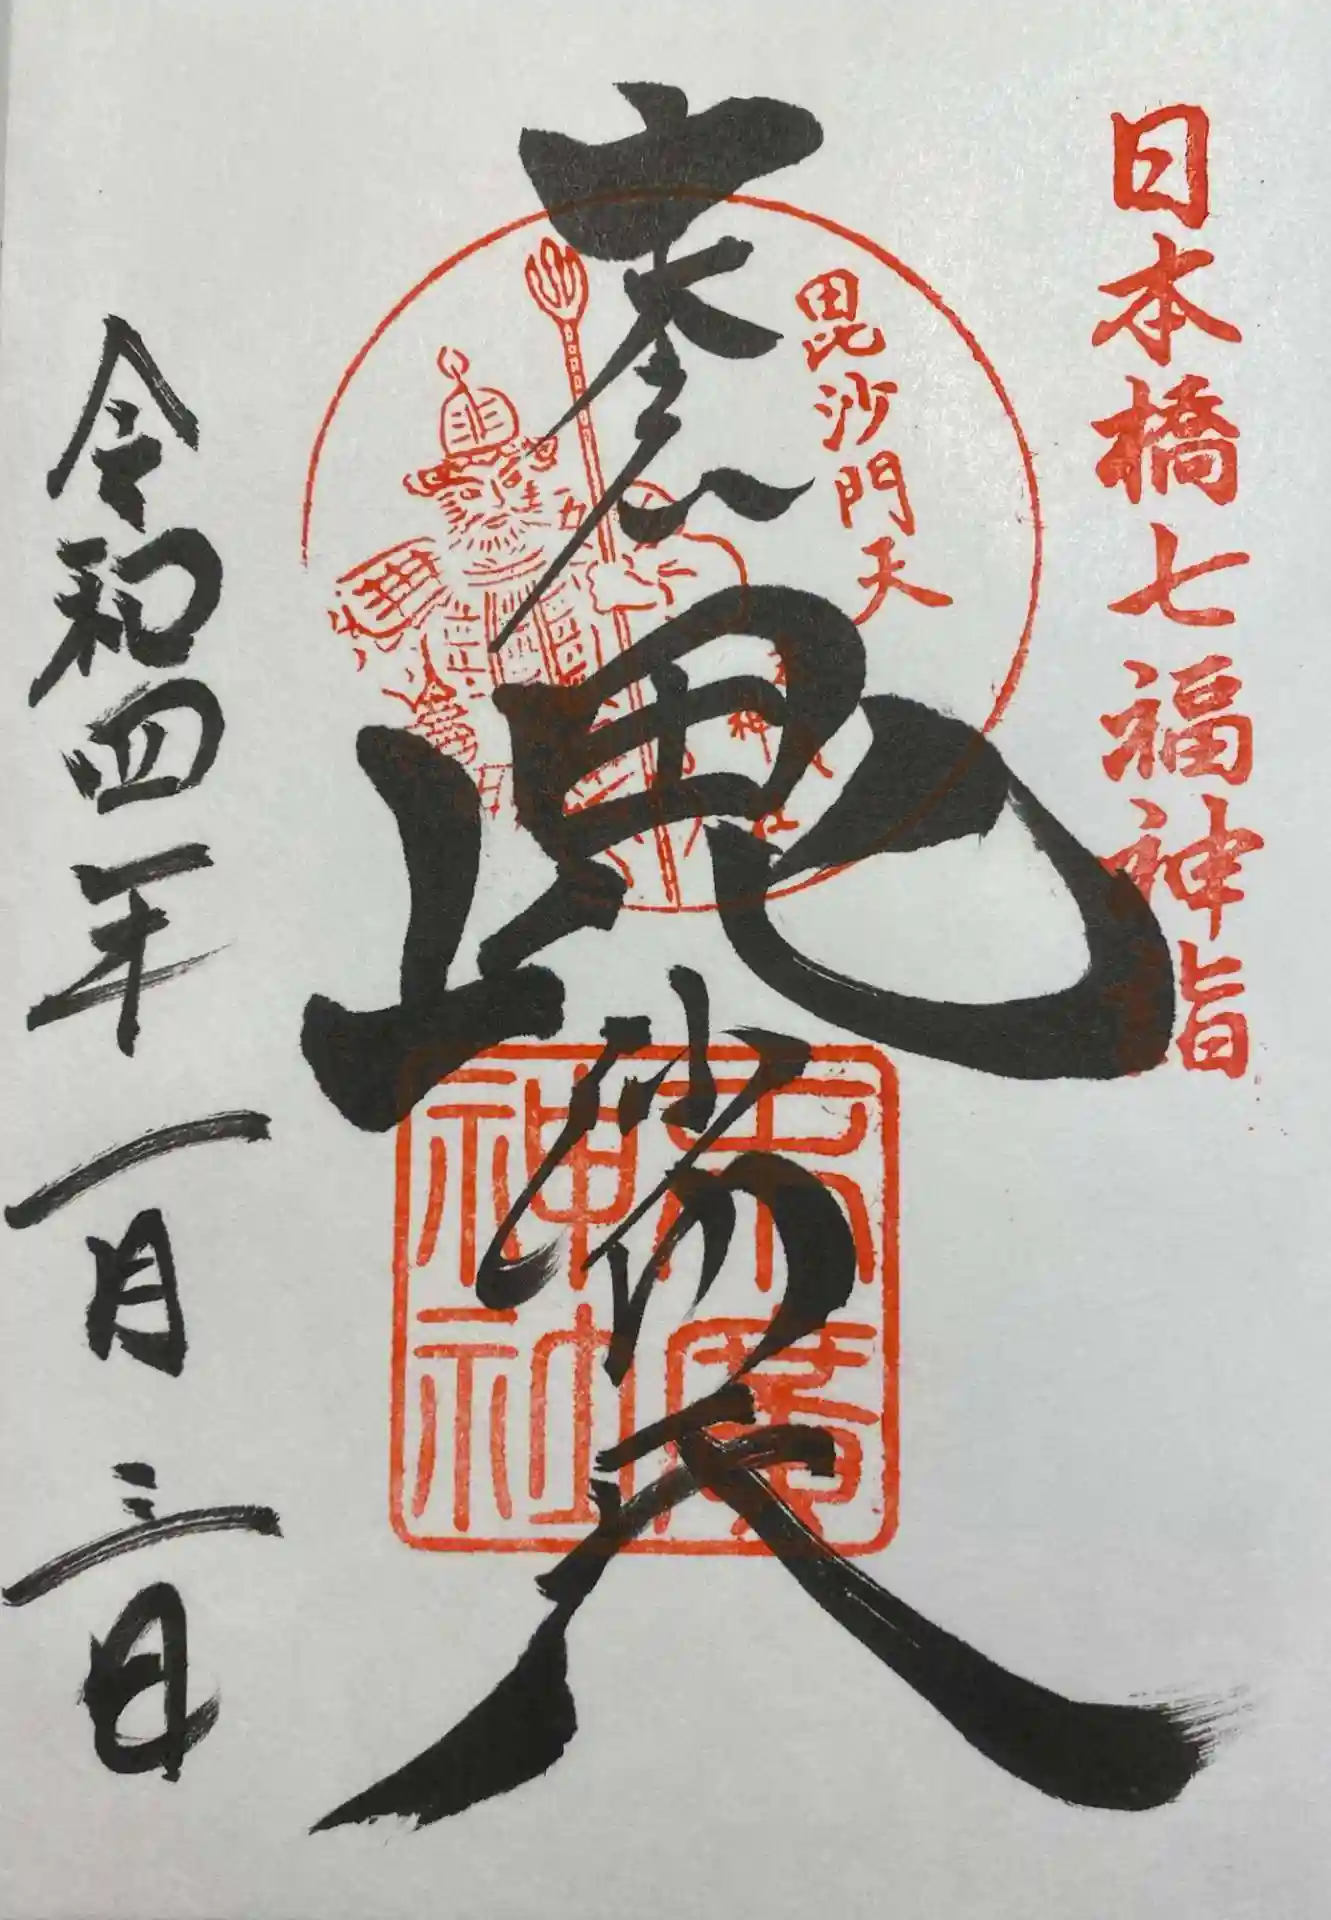 日本橋七福神詣
毘沙門天
末廣神社
毘沙門天
末廣神社
令和四年一月三日